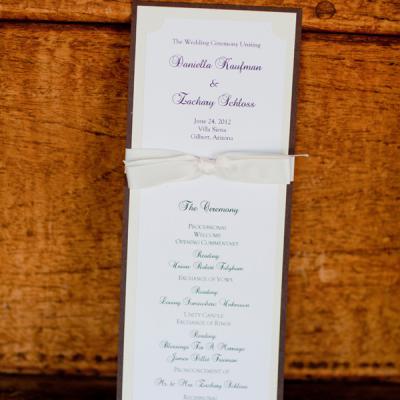 The Wedding Ceremony Uniting
Daniella Kaufman
&
Zachary Schloss
June 24, 2012
Villa Siena
Gilbert, Arizona
The Ceremony
Processional
Welcome
Opening Commentary
Reading:
Exchange of Vows
Reading:
Unity Candle
Exchange of Rings
Reading:
Blessings For A Marriage
James Dillet Freeman
Pronouncement of
Mr. & Mrs. Zachary Schloss
Recessional